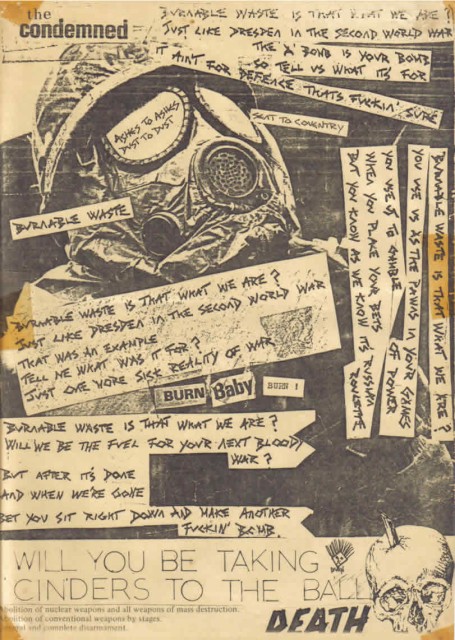 the
condemned
BURNABLE WASTE IS THAT WHAT WE ARE?
JUST LIKE DRESDEN IN THE SECOND WORLD WAR
THE 'A' BOMB IS YOUR BOMB
SO TELL US WHAT ITS FOR
IT AINT FOR DEFENCE THATS FUCKIN' SURE
ASHES TO ASHES
DUST TO DUST
SENT TO COVENTRY
BURNABLE WASTE
BURNABLE WASTE IS THAT WHAT WE ARE?
YOU USE US AS THE PAWNS IN YOUR GAMES
OF POWER
YOU USE US TO GAMBLE
WHEN YOU PLACE YOUR BETS
BUT YOU KNOW AS WE KNOW ITS RUSSIAN
ROULETTE.
BURNABLE WASTE IS THAT WHAT WE ARE?
JUST LIKE DRESDEN IN THE SECOND WORLD WAR
THAT WAS AN EXAMPLE
TELL ME WHAT WAS IT FOR?
JUST ONE MORE SICK REALITY OF WAR
BURN Baby BURN!
BURNABLE WASTE IS THAT WHAT WE ARE?
WILL WE BE THE FUEL FOR YOUR NEXT BLOODY
WAR?
BUT AFTER ITS DONE
AND WHEN WE'RE GONE
BET YOU SIT RIGHT DOWN AND MAKE ANOTHER
FUCKIN' BOMB.
WILL YOU BE TAKING
CINDERS TO THE BALL
DEATH
bolition of nuclear weapons and all weapons of mass destruction.
bolition of conventional weapons by stages.
and complete disarmament.